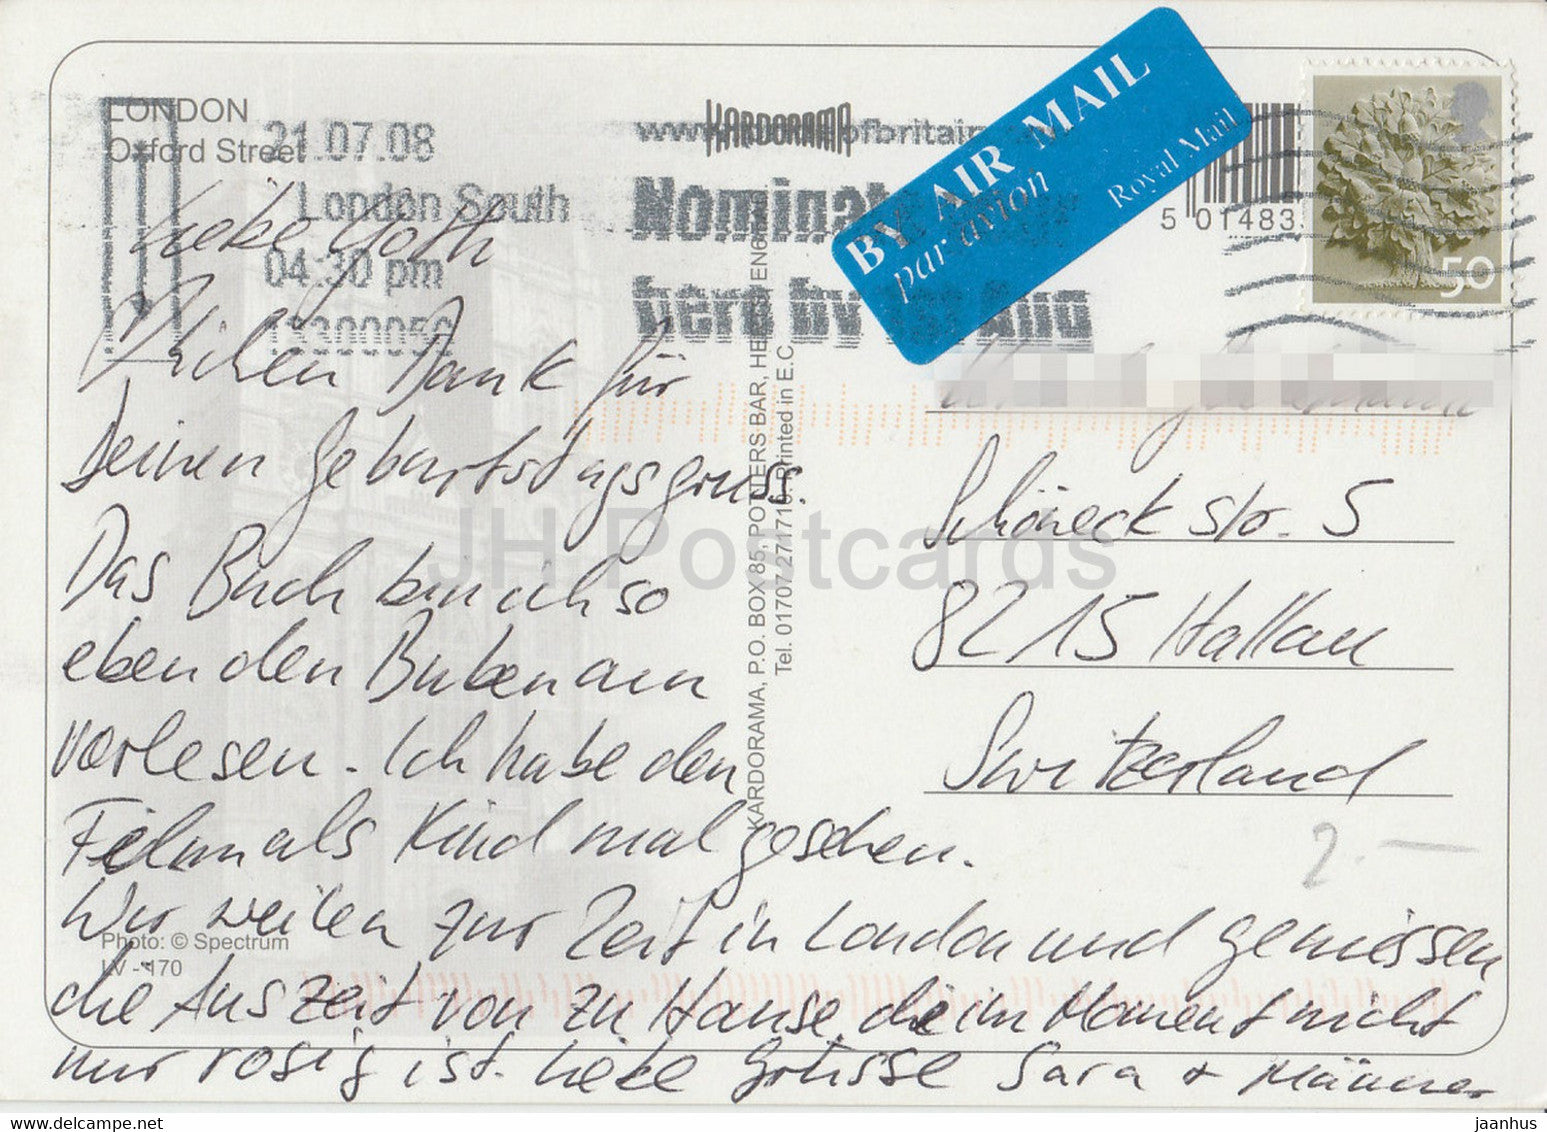 LONDON
Oxford Street
21.07.08
London South
04:30 pm
KARDORAMA
BY AIR MAIL
par avion
Royal Mail
5 01483
50
Liebe Goth
Lichen Dank für
Deinen Geburtstagsgruss.
Das Buch bin ich so
eben den Buben am
vorlesen. Ich habe den
Film als Kind mal gesehen.
Wir weilen zur Zeit in London und geniessen
die Auszeit von zu Hause, die im Moment nicht
nur rosig ist. Liebe Grüsse Sara + Männer
Schöneckstr. 5
8215 Hallau
Switzerland
2.—
KARDORAMA, P.O. BOX 85, POTTERS BAR, HERTS, EN6
Tel. 01707 271710. Printed in E.C.
Photo: © Spectrum
LV - 170
JH Postcards
jaanhus